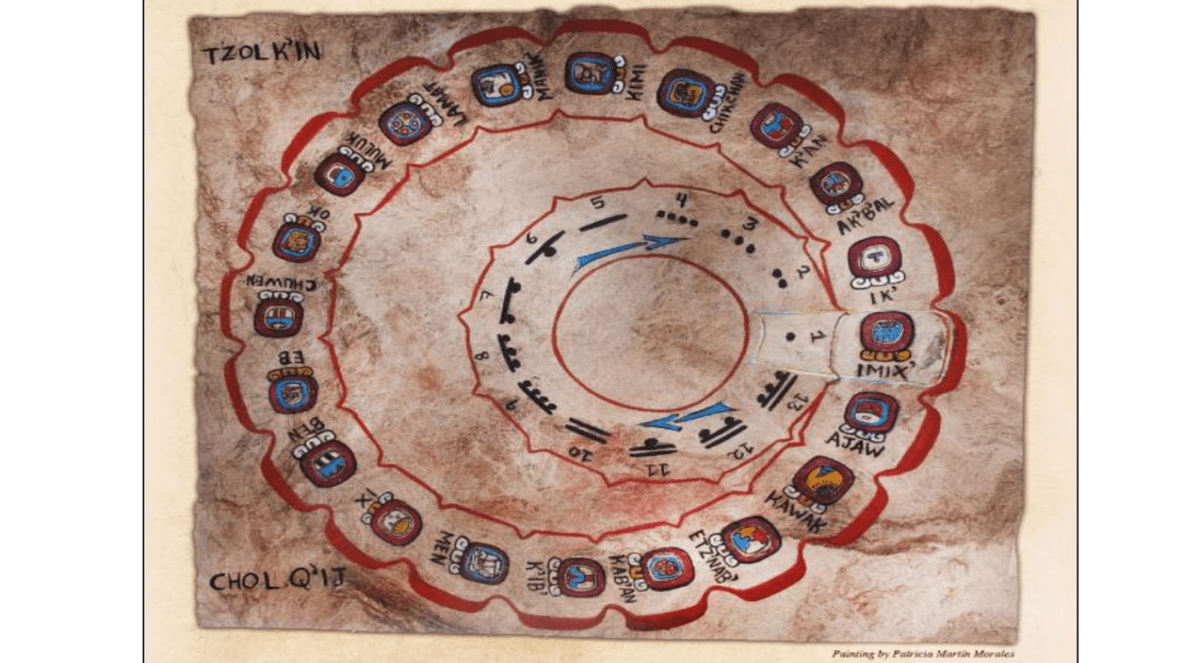 TZOLK'IN
MANIK'
KIMI
CHIKCHAN
K'AN
AK'B'AL
IK'
IMIX'
AJAW
KAWAK
ETZNAB'
KAB'AN
K'IB'
MEN
IX
BEN
EB
CHUWEN
OK
MULUK
LAMAT
1
2
3
4
5
6
7
8
9
10
11
12
13
CHOLQ'IJ
Painting by Patricia Martín Morales